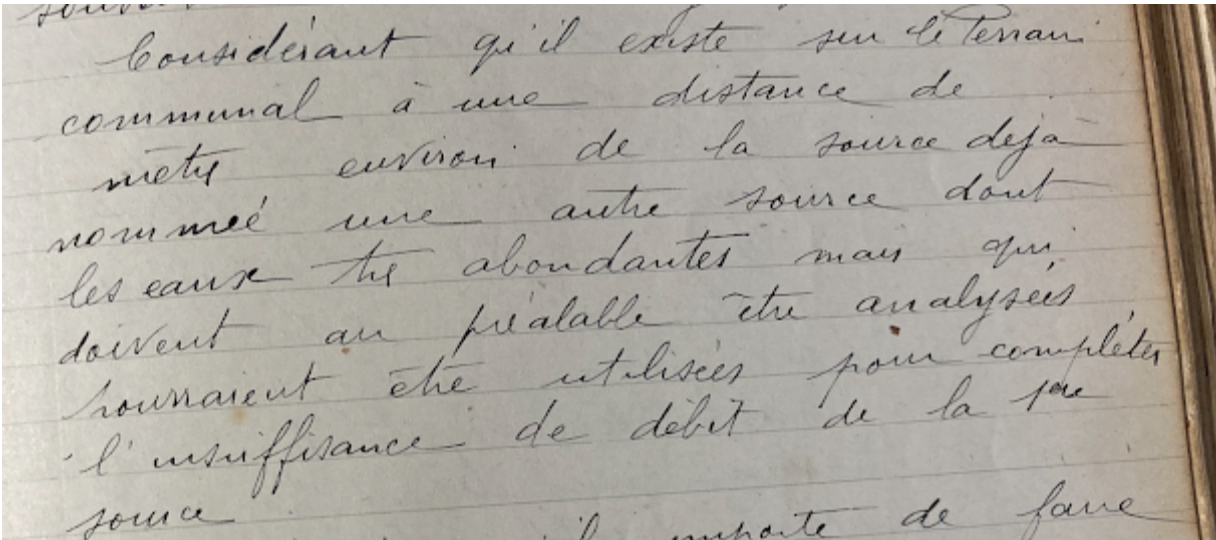 Considérant qu'il existe sur le terrain
communal à une distance de
mètres environ de la source déjà
nommée une autre source dont
les eaux très abondantes mais qui
doivent au préalable être analysées
pourraient être utilisées pour compléter
l'insuffisance de débit de la 1ère
source
il importe de faire